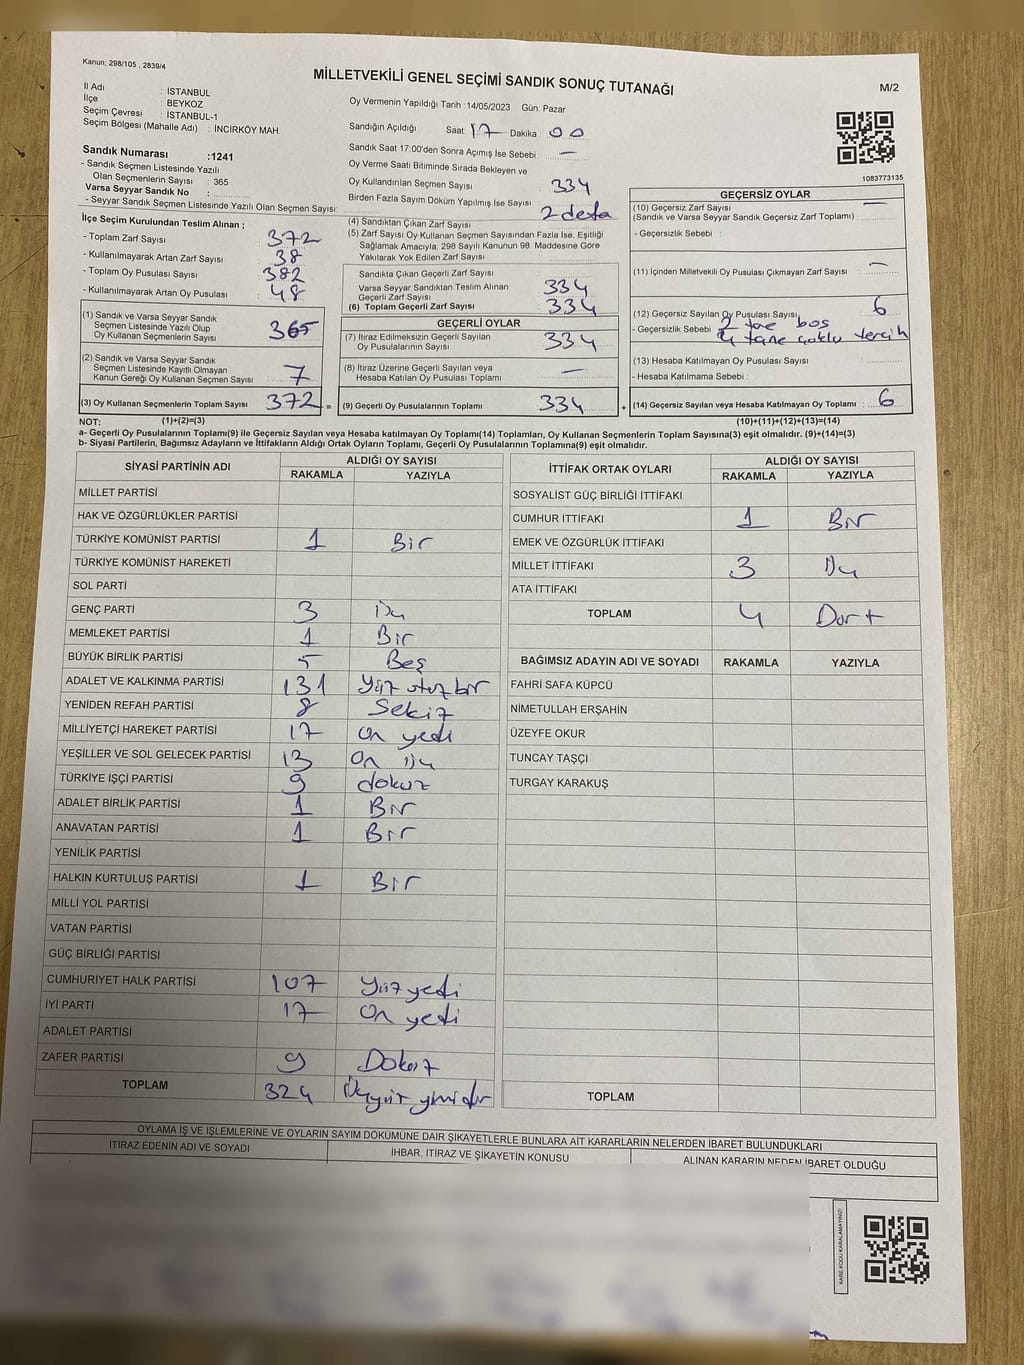 Kanun; 298/105 , 2839/4
MİLLETVEKİLİ GENEL SEÇİMİ SANDIK SONUÇ TUTANAĞI
M/2
İl Adı : İSTANBUL
İlçe : BEYKOZ
Seçim Çevresi : İSTANBUL-1
Seçim Bölgesi (Mahalle Adı) : İNCİRKÖY MAH.
Oy Vermenin Yapıldığı Tarih :14/05/2023 Gün: Pazar
Sandığın Açıldığı Saat 17 Dakika : 00
Sandık Saat 17:00'den Sonra Açımış İse Sebebi : —
Oy Verme Saati Bitiminde Sırada Bekleyen ve
Oy Kullandırılan Seçmen Sayısı 334
Birden Fazla Sayım Döküm Yapılmış İse Sayısı 2 defa
1083773135
Sandık Numarası :1241
- Sandık Seçmen Listesinde Yazılı
Olan Seçmenlerin Sayısı : 365
Varsa Seyyar Sandık No :
- Seyyar Sandık Seçmen Listesinde Yazılı Olan Seçmen Sayısı:
İlçe Seçim Kurulundan Teslim Alınan ;
- Toplam Zarf Sayısı : 372
- Kullanılmayarak Artan Zarf Sayısı : 38
- Toplam Oy Pusulası Sayısı : 382
- Kullanılmayarak Artan Oy Pusulası : 48
(1) Sandık ve Varsa Seyyar Sandık
Seçmen Listesinde Yazılı Olup
Oy Kullanan Seçmenlerin Sayısı 365
(2) Sandık ve Varsa Seyyar Sandık
Seçmen Listesinde Kayıtlı Olmayan
Kanun Gereği Oy Kullanan Seçmen Sayısı 7
(3) Oy Kullanan Seçmenlerin Toplam Sayısı 372 =
(4) Sandıktan Çıkan Zarf Sayısı :
(5) Zarf Sayısı Oy Kullanan Seçmen Sayısından Fazla İse, Eşitliği
Sağlamak Amacıyla, 298 Sayılı Kanunun 98. Maddesine Göre
Yakılarak Yok Edilen Zarf Sayısı :
Sandıkta Çıkan Geçerli Zarf Sayısı
Varsa Seyyar Sandıktan Teslim Alınan
Geçerli Zarf Sayısı 334
(6) Toplam Geçerli Zarf Sayısı 334
GEÇERLİ OYLAR
(7) İtiraz Edilmeksizin Geçerli Sayılan
Oy Pusulalarının Sayısı 334
(8) İtiraz Üzerine Geçerli Sayılan veya
Hesaba Katılan Oy Pusulası Toplamı —
(9) Geçerli Oy Pusulalarının Toplamı 334 +
GEÇERSİZ OYLAR
(10) Geçersiz Zarf Sayısı —
(Sandık ve Varsa Seyyar Sandık Geçersiz Zarf Toplamı) :
- Geçersizlik Sebebi :
(11) İçinden Milletvekili Oy Pusulası Çıkmayan Zarf Sayısı : —
(12) Geçersiz Sayılan Oy Pusulası Sayısı 6
- Geçersizlik Sebebi : 2 tane boş
4 tane çoklu tercih
(13) Hesaba Katılmayan Oy Pusulası Sayısı
- Hesaba Katılmama Sebebi :
(14) Geçersiz Sayılan veya Hesaba Katılmayan Oy Toplamı : 6
NOT: (1)+(2)=(3) (10)+(11)+(12)+(13)=(14)
a- Geçerli Oy Pusulalarının Toplamı(9) ile Geçersiz Sayılan veya Hesaba katılmayan Oy Toplamı(14) Toplamları, Oy Kullanan Seçmenlerin Toplam Sayısına(3) eşit olmalıdır. (9)+(14)=(3)
b- Siyasi Partilerin, Bağımsız Adayların ve İttifakların Aldığı Ortak Oyların Toplamı, Geçerli Oy Pusulalarının Toplamına(9) eşit olmalıdır.
SİYASİ PARTİNİN ADI ALDIĞI OY SAYISI
RAKAMLA YAZIYLA
MİLLET PARTİSİ
HAK VE ÖZGÜRLÜKLER PARTİSİ
TÜRKİYE KOMÜNİST PARTİSİ 1 Bir
TÜRKİYE KOMÜNİST HAREKETİ
SOL PARTİ
GENÇ PARTİ 3 Üç
MEMLEKET PARTİSİ 1 Bir
BÜYÜK BİRLİK PARTİSİ 5 Beş
ADALET VE KALKINMA PARTİSİ 131 Yüz otuz bir
YENİDEN REFAH PARTİSİ 8 Sekiz
MİLLİYETÇİ HAREKET PARTİSİ 17 On yedi
YEŞİLLER VE SOL GELECEK PARTİSİ 13 On üç
TÜRKİYE İŞÇİ PARTİSİ 9 dokuz
ADALET BİRLİK PARTİSİ 1 Bir
ANAVATAN PARTİSİ 1 Bir
YENİLİK PARTİSİ
HALKIN KURTULUŞ PARTİSİ 1 Bir
MİLLİ YOL PARTİSİ
VATAN PARTİSİ
GÜÇ BİRLİĞİ PARTİSİ
CUMHURİYET HALK PARTİSİ 107 Yüz yedi
İYİ PARTİ 17 On yedi
ADALET PARTİSİ
ZAFER PARTİSİ 9 Dokuz
TOPLAM 324
İTTİFAK ORTAK OYLARI ALDIĞI OY SAYISI
RAKAMLA YAZIYLA
SOSYALİST GÜÇ BİRLİĞİ İTTİFAKI
CUMHUR İTTİFAKI 1 Bir
EMEK VE ÖZGÜRLÜK İTTİFAKI
MİLLET İTTİFAKI 3 Üç
ATA İTTİFAKI
TOPLAM 4 Dört
BAĞIMSIZ ADAYIN ADI VE SOYADI RAKAMLA YAZIYLA
FAHRİ SAFA KÜPCÜ
NİMETULLAH ERŞAHİN
ÜZEYFE OKUR
TUNCAY TAŞÇI
TURGAY KARAKUŞ
TOPLAM
OYLAMA İŞ VE İŞLEMLERİNE VE OYLARIN SAYIM DÖKÜMÜNE DAİR ŞİKAYETLERLE BUNLARA AİT KARARLARIN NELERDEN İBARET BULUNDUKLARI
İTİRAZ EDENİN ADI VE SOYADI İHBAR, İTİRAZ VE ŞİKAYETİN KONUSU ALINAN KARARIN NEDEN İBARET OLDUĞU
KARE KODU KARALAMAYINIZ!